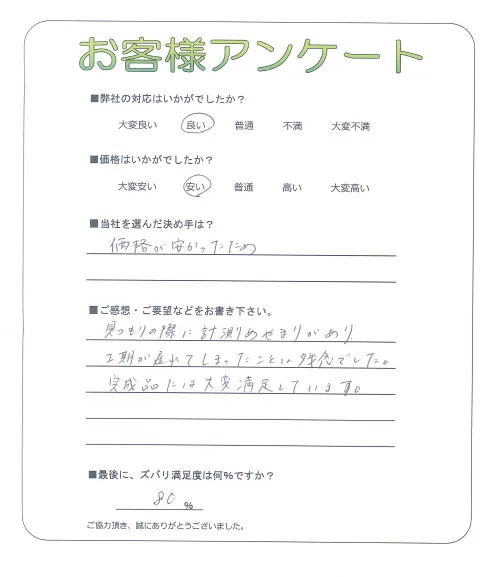 お客様アンケート
■弊社の対応はいかがでしたか？
大変良い 良い 普通 不満 大変不満
■価格はいかがでしたか？
大変安い 安い 普通 高い 大変高い
■当社を選んだ決め手は？
価格が安かったため
■ご感想・ご要望などをお書き下さい。
見つもりの際に計測あやまりがあり
工期が遅れてしまったことは残念でした。
完成品には大変満足しています。
■最後に、ズバリ満足度は何%ですか？
80 %
ご協力頂き、誠にありがとうございました。